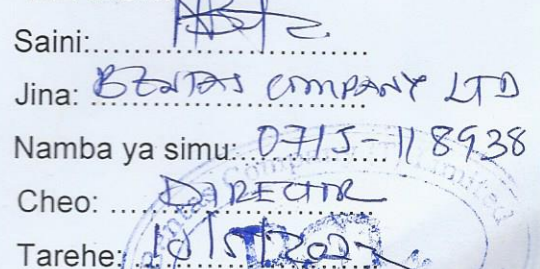 Saini:
Jina: BENTAS COMPANY LTD
Namba ya simu: 0715-118938
Cheo: DIRECTOR
Tarehe: 10/5/2022